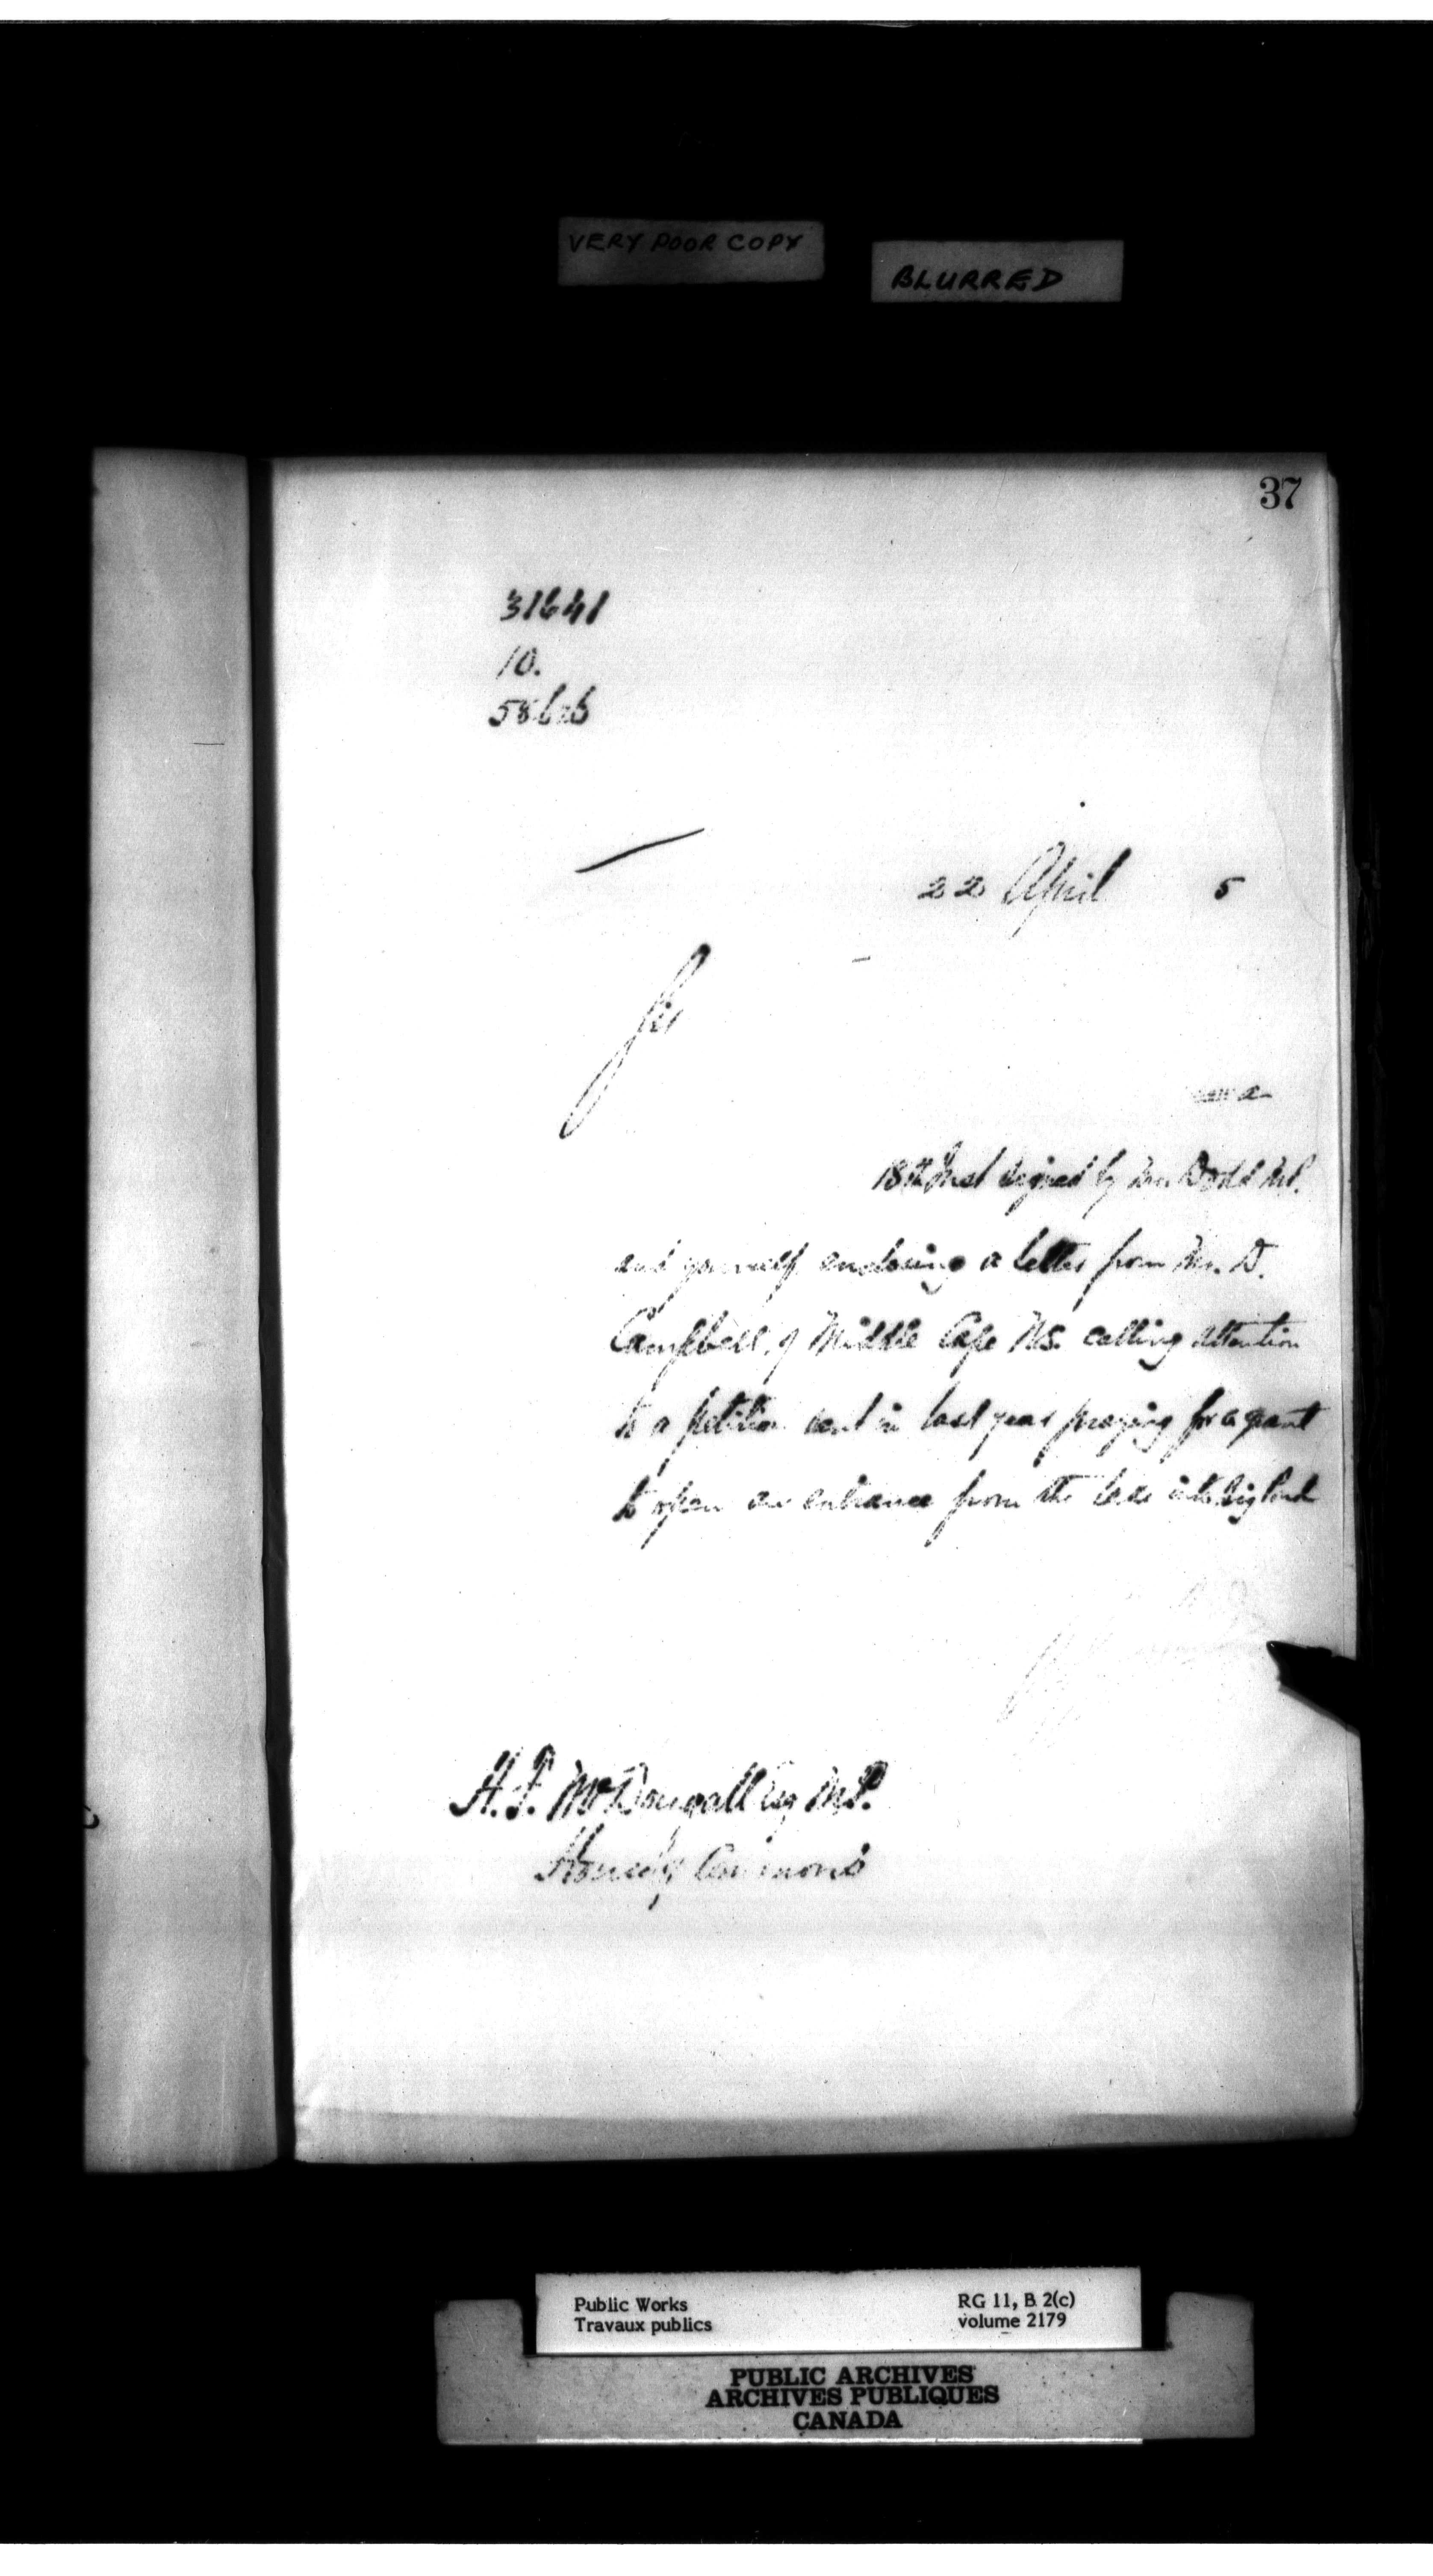 VERY POOR COPY
BLURRED
37
31641
10.
22 April 5
Sir
18th Inst signed by Mr. Dodd M.P.
and yourself enclosing a letter from Mr. D.
Campbell of Middle Cape N.S. calling attention
to a petition sent in last year praying for a grant
to open an entrance from the Lake into Big Pond
H. F. McDougall Esq M.P.
House of Commons
Public Works
Travaux publics
RG 11, B 2(c)
volume 2179
PUBLIC ARCHIVES
ARCHIVES PUBLIQUES
CANADA